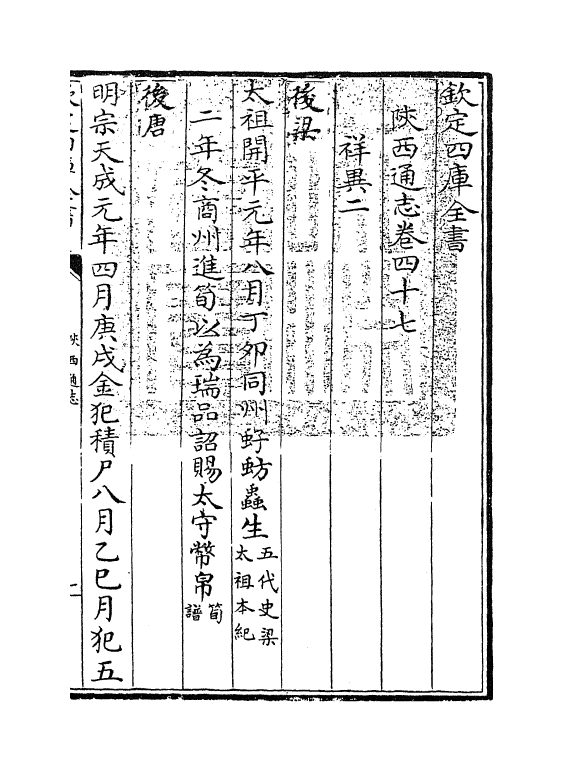 欽定四庫全書
陝西通志卷四十七
祥異二
後梁
太祖開平元年八月丁夘同州虸蚄蟲生五代史梁太祖本紀
二年冬商州進筍以為瑞品詔賜太守幣帛筍譜
後唐
明宗天成元年四月庚戌金犯積尸八月乙巳月犯五
陜西通志